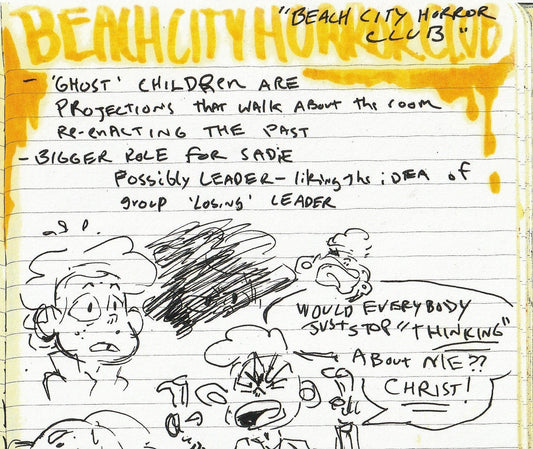 BEACH CITY HORROR CLUB
"BEACH CITY HORROR
CLUB"
- 'GHOST' CHILDREN ARE
PROJECTIONS that WALK About the room
RE-ENACTING THE PAST
- BIGGER ROLE FOR SADIE
POSSIBLY LEADER - liking the iDEA of
group 'LOSING' LEADER
WOULD EVERYBODY
JUST STOP "THINKING"
ABOUT ME??
CHRIST!